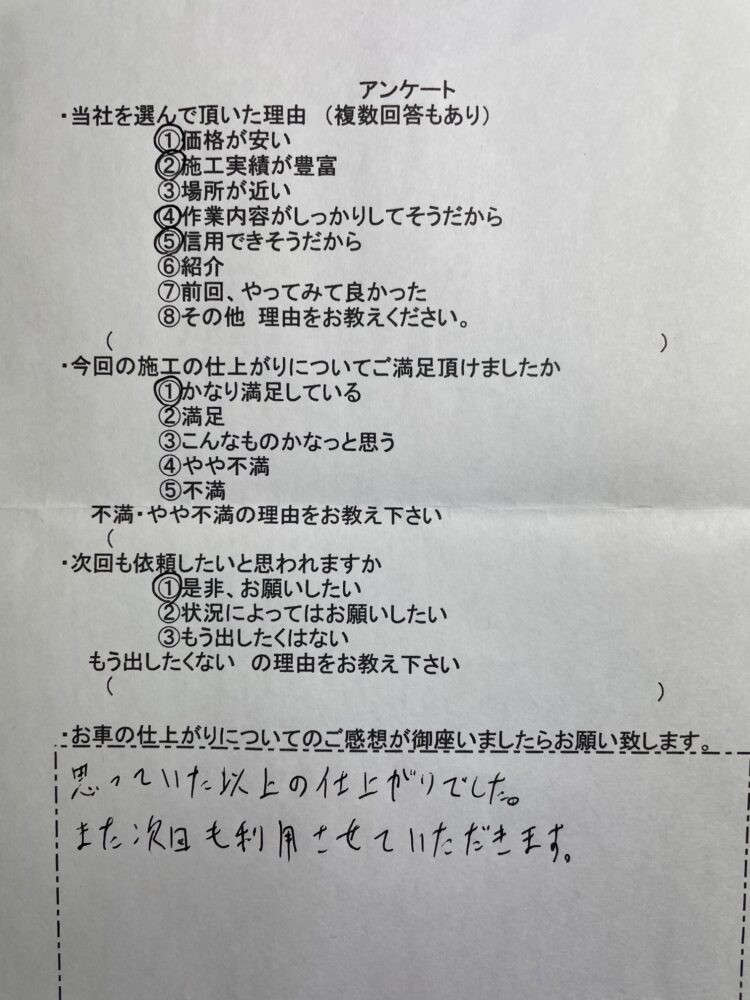 アンケート
・当社を選んで頂いた理由 (複数回答もあり)
①価格が安い
②施工実績が豊富
③場所が近い
④作業内容がしっかりしてそうだから
⑤信用できそうだから
⑥紹介
⑦前回、やってみて良かった
⑧その他 理由をお教えください。
( )
・今回の施工の仕上がりについてご満足頂けましたか
①かなり満足している
②満足
③こんなものかなっと思う
④やや不満
⑤不満
不満・やや不満の理由をお教え下さい
(
・次回も依頼したいと思われますか
①是非、お願いしたい
②状況によってはお願いしたい
③もう出したくはない
もう出したくない の理由をお教え下さい
( )
・お車の仕上がりについてのご感想が御座いましたらお願い致します。
思っていた以上の仕上がりでした。
また次回も利用させていただきます。